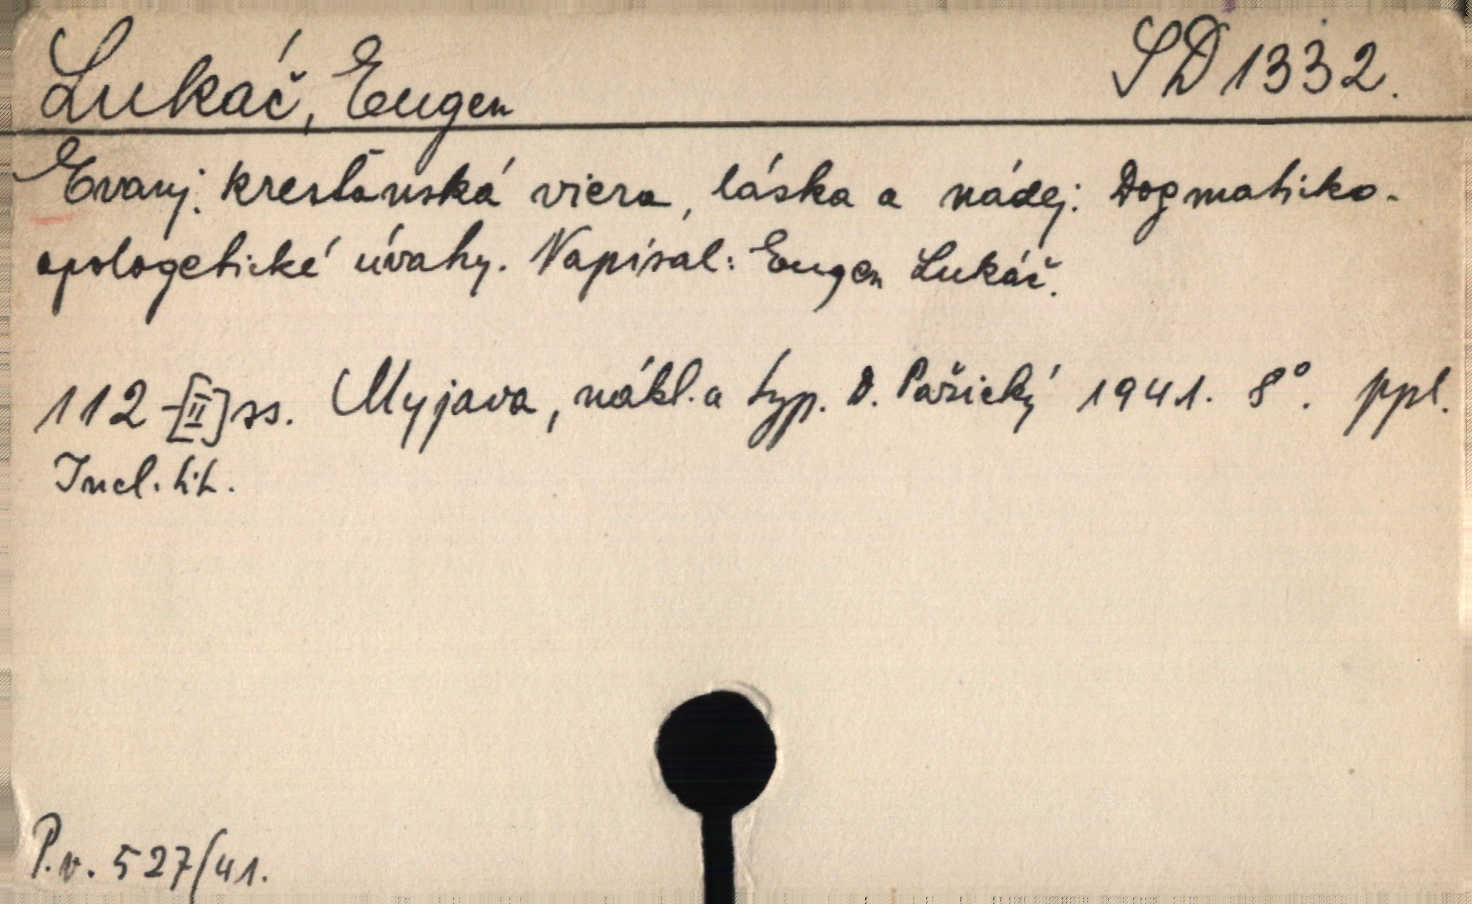 Lukáč, Eugen SD 1332.
Evanj. kresťanská viera, láska a nádej: Dogmaticko-
apologetické úvahy. Napísal: Eugen Lukáč.
112-[II] ss. Myjava, nákl. a typ. D. Pažický 1941. 8°. ppl.
Incl. tit.
P.v. 527/41.